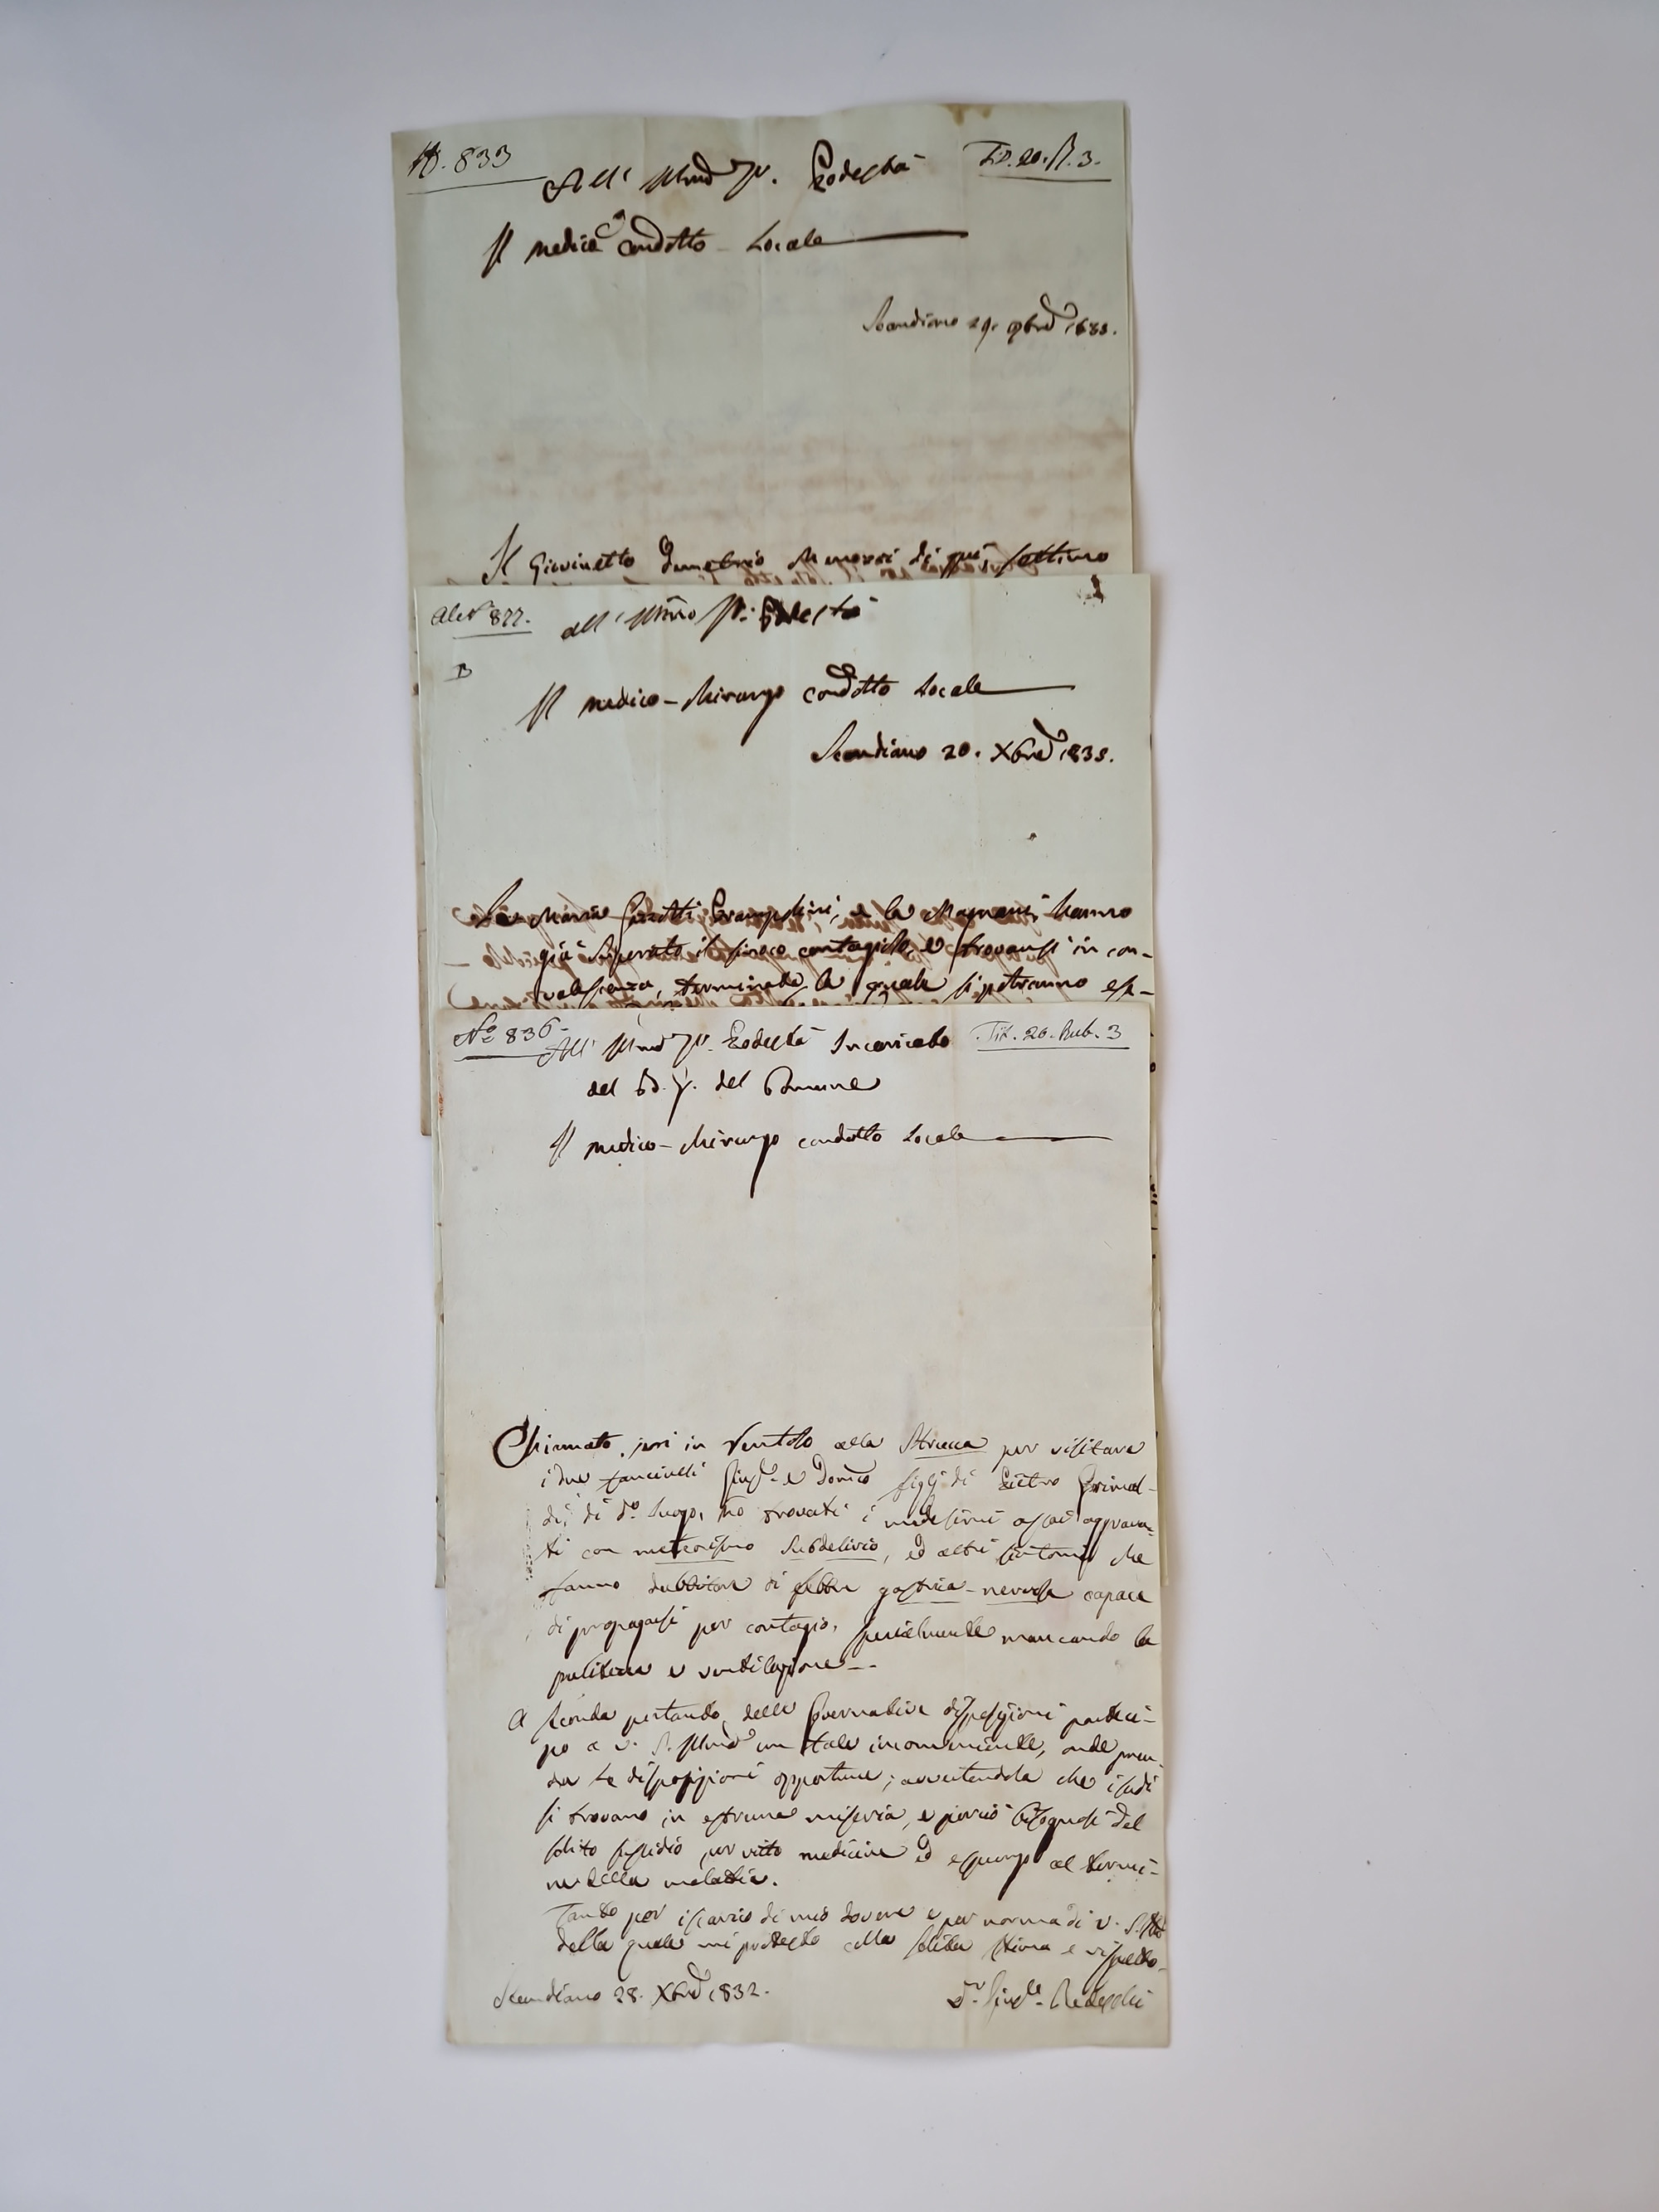 N. 833
Tit. 20. R. 3.
All' Illmo Sr. Podestà
Il medico condotto Locale
Scandiano 29. 9bre 1833.
Il Giovinetto Demetrio di quì, settimo
Al N. 877.
All' Illmo Sr. Podestà
B
Il medico-chirurgo condotto Locale
Scandiano 20. Xbre 1833.
La Maria Grampolini, e la hanno
già superato il contagioso, e trovansi in con-
valescenza, terminata la quale si potranno es-
No 836-
Tit. 20. Rub. 3
All' Illmo Sr. Podestà Incaricato
del B. G. del Comune
Il medico-chirurgo condotto Locale
Chiamato jeri in Ventoso alla Stracca per visitare
i due fanciulli Giuse. e Domco figlj di Pietro Grimal-
di, di do. luogo, ho trovati i medesimi assai aggrava-
ti con meteorismo subdelirio, ed altri sintomi che
fanno dubbitare di febbre gastrica-nervosa capace
di propagarsi per contagio, specialmente mancando la
pulitezza e ventilazione--
A seconda pertanto delle Governative disposizioni parteci-
po a V. S. Illma un tale inconveniente, onde pren-
da le disposizioni opportune; avvertendola che i sudi
si trovano in estrema miseria, e perciò bisognosi del
solito sussidio per vitto medicine ed espurgo al termi-
ne della malattia.
Tanto per iscarico di mio dovere e per norma di V. S. Illma
della quale mi protesto colla solita stima e rispetto-
Scandiano 28. Xbre 1832.
Dr. Giuse.